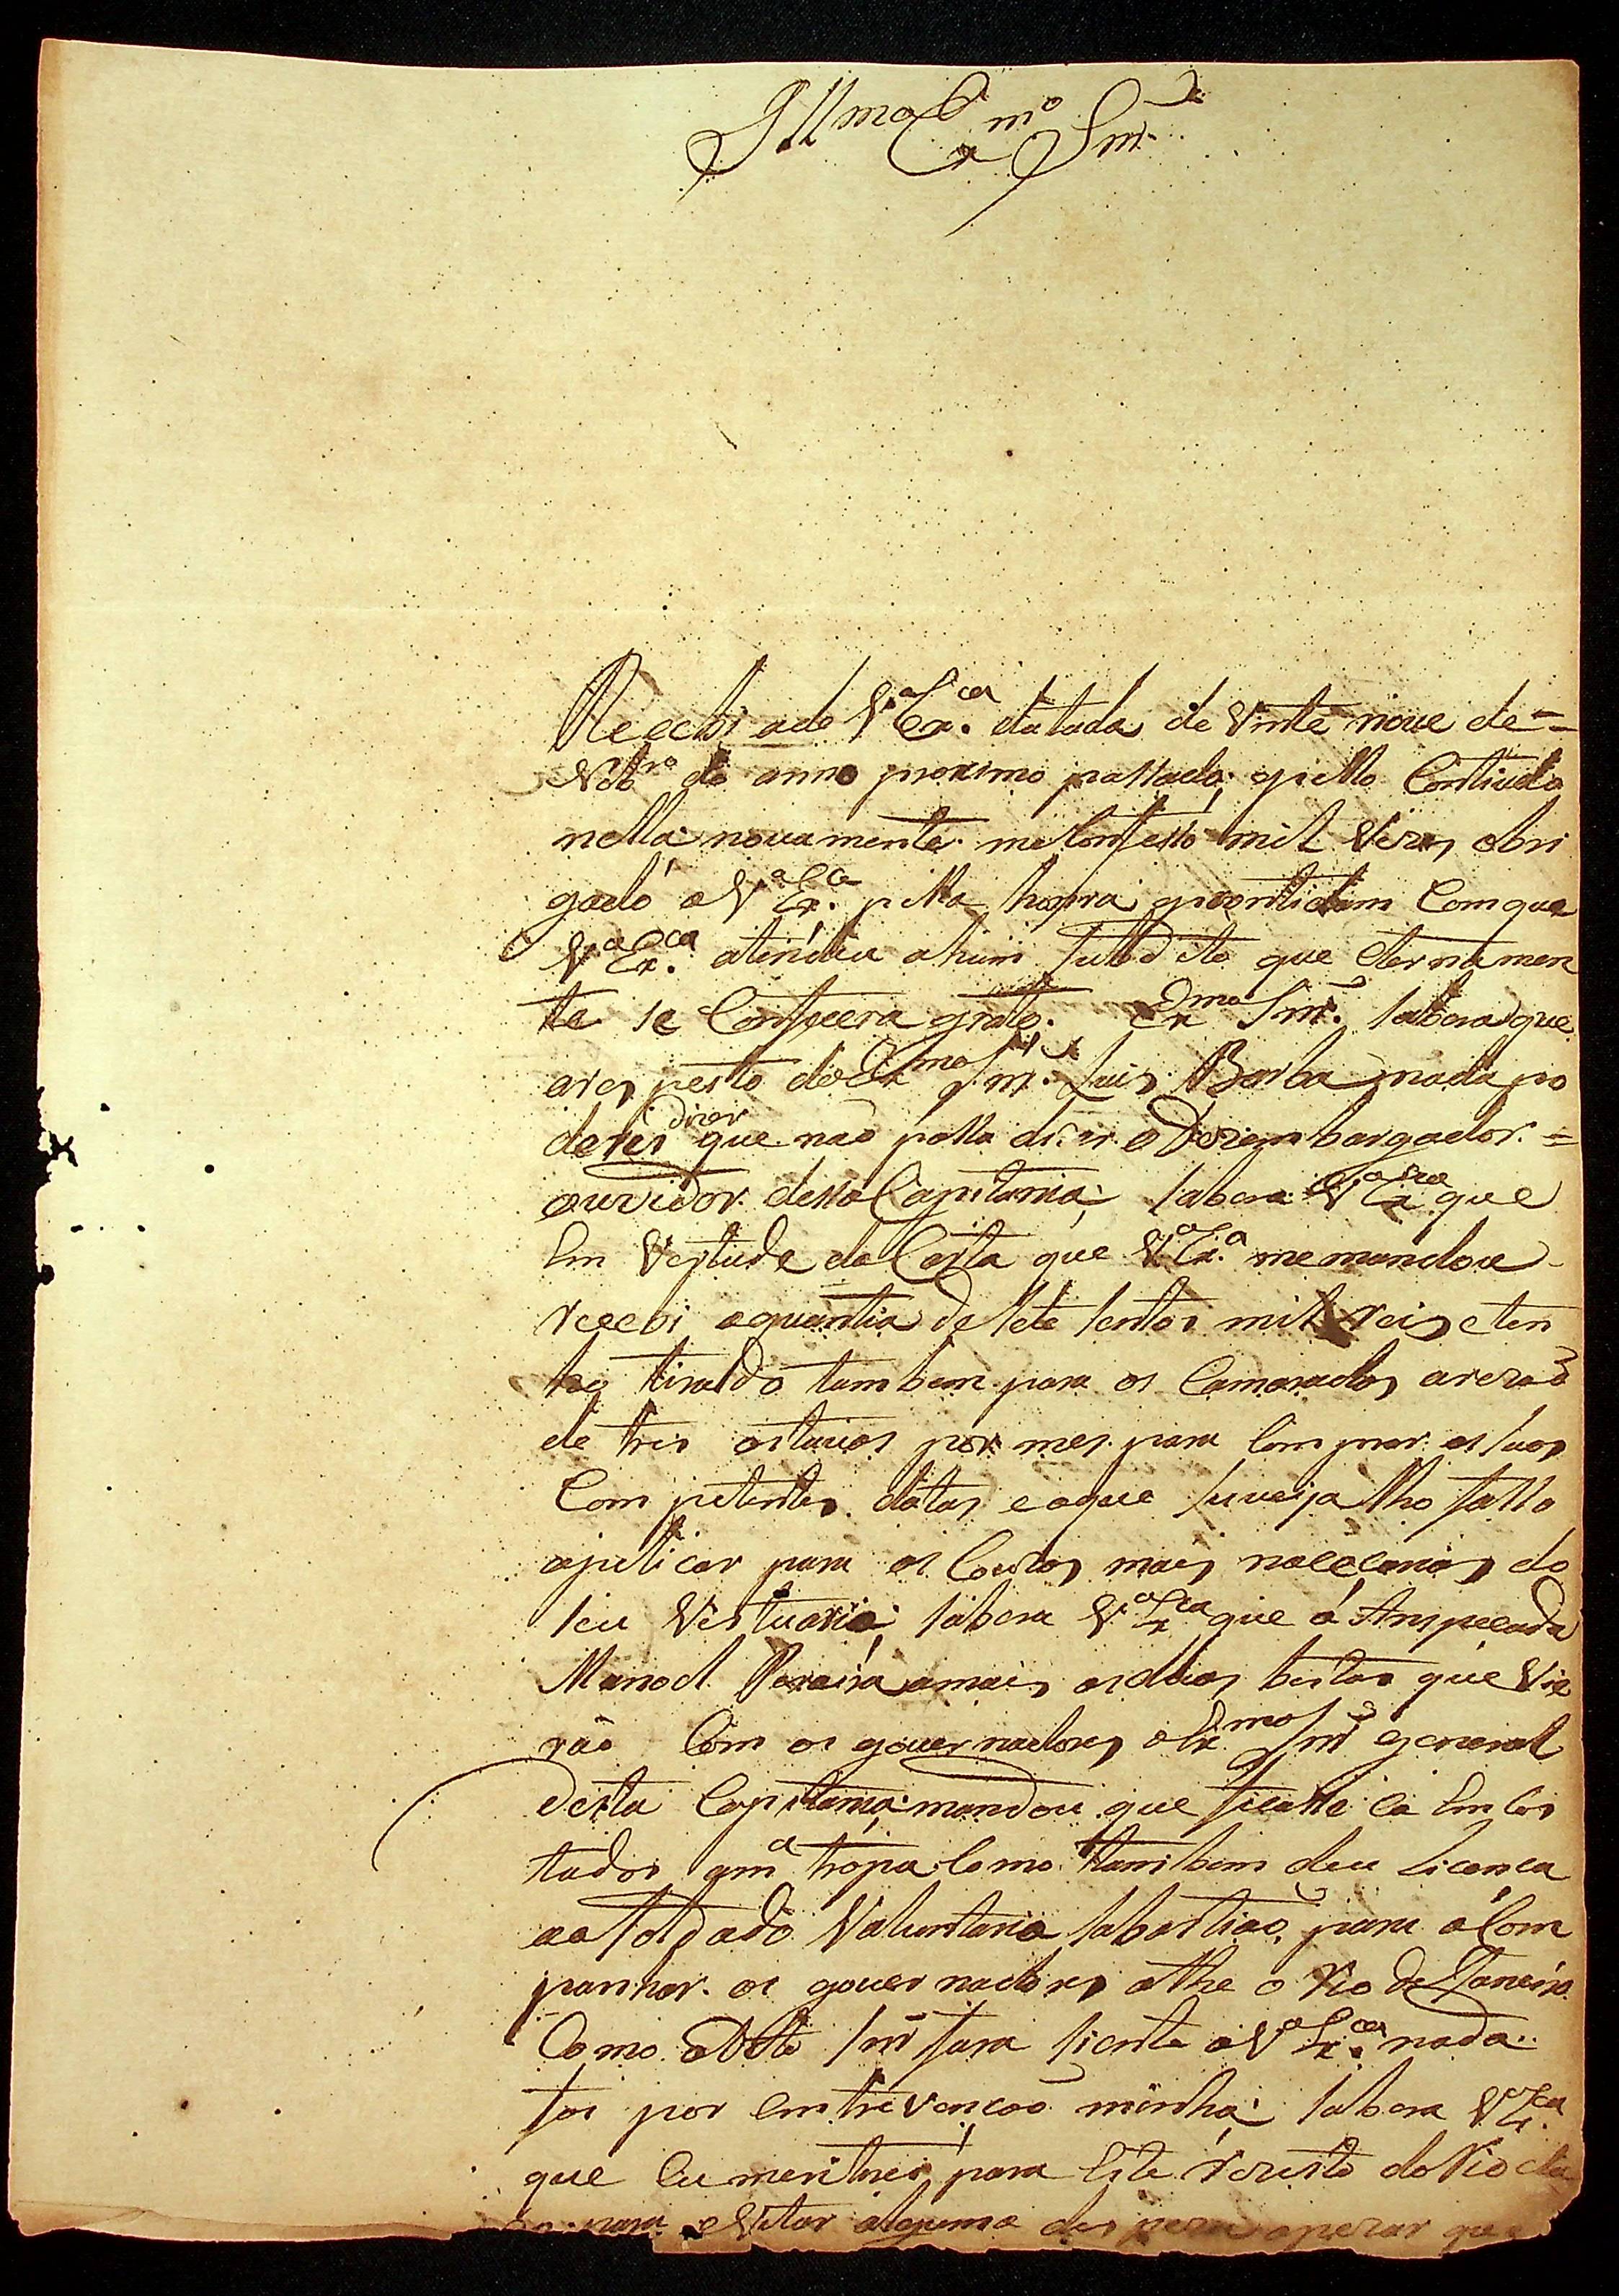 Illmo Exmo Snr
Recebi a de Va Exca. datada de Vinte nove de=
Nobro do anno proximo passado; epello Contiudo
nella novamente me Confesso mil Vezes obri
gado a Va Exca. pella honrra eprontidam Comque
Va Exca. atendeu ahum subdito que eternamen
te se Confecera grato. Exmo Snr. sabera que
ares peito do Exmo Snr. Luis Barba nada po
derei dizer que não possa dizer o Dezembargador.=
ouvidor. desta Capitania; sabera Va Exca que
Em Vertude da Carta que Va Exa. me mandou
recebi aquantia de sete sentos mil reis eten
ho tirado tambem para os Camaradas arezão
de tres oitavas por mes. para Comprar. as suas
Competentes datas, e aque suveja lho fasso
apelicar para as Couzas mais neceçarias do
seu Vestuario; sabera Va Exca que o Anspecada
Manoel Pereira amais as duas bestas que Vie
rão Com os governadores o Exmo Snr general
desta Capitania; mandou que ficasse ca Em Cos
tados a ma tropa Como tambem deu Licença
ao soldado Valuntario sabastião, para aCom
panhar. os governadores athe o Rio de Janeiro.
Como o Dto Snr fara siente a Va Exca. nada..
foi por entrevenção minha; sabera Va Exca
que Eu mentrei para Este rezisto do Rio cla
para eVitar alguma des peza apezar que